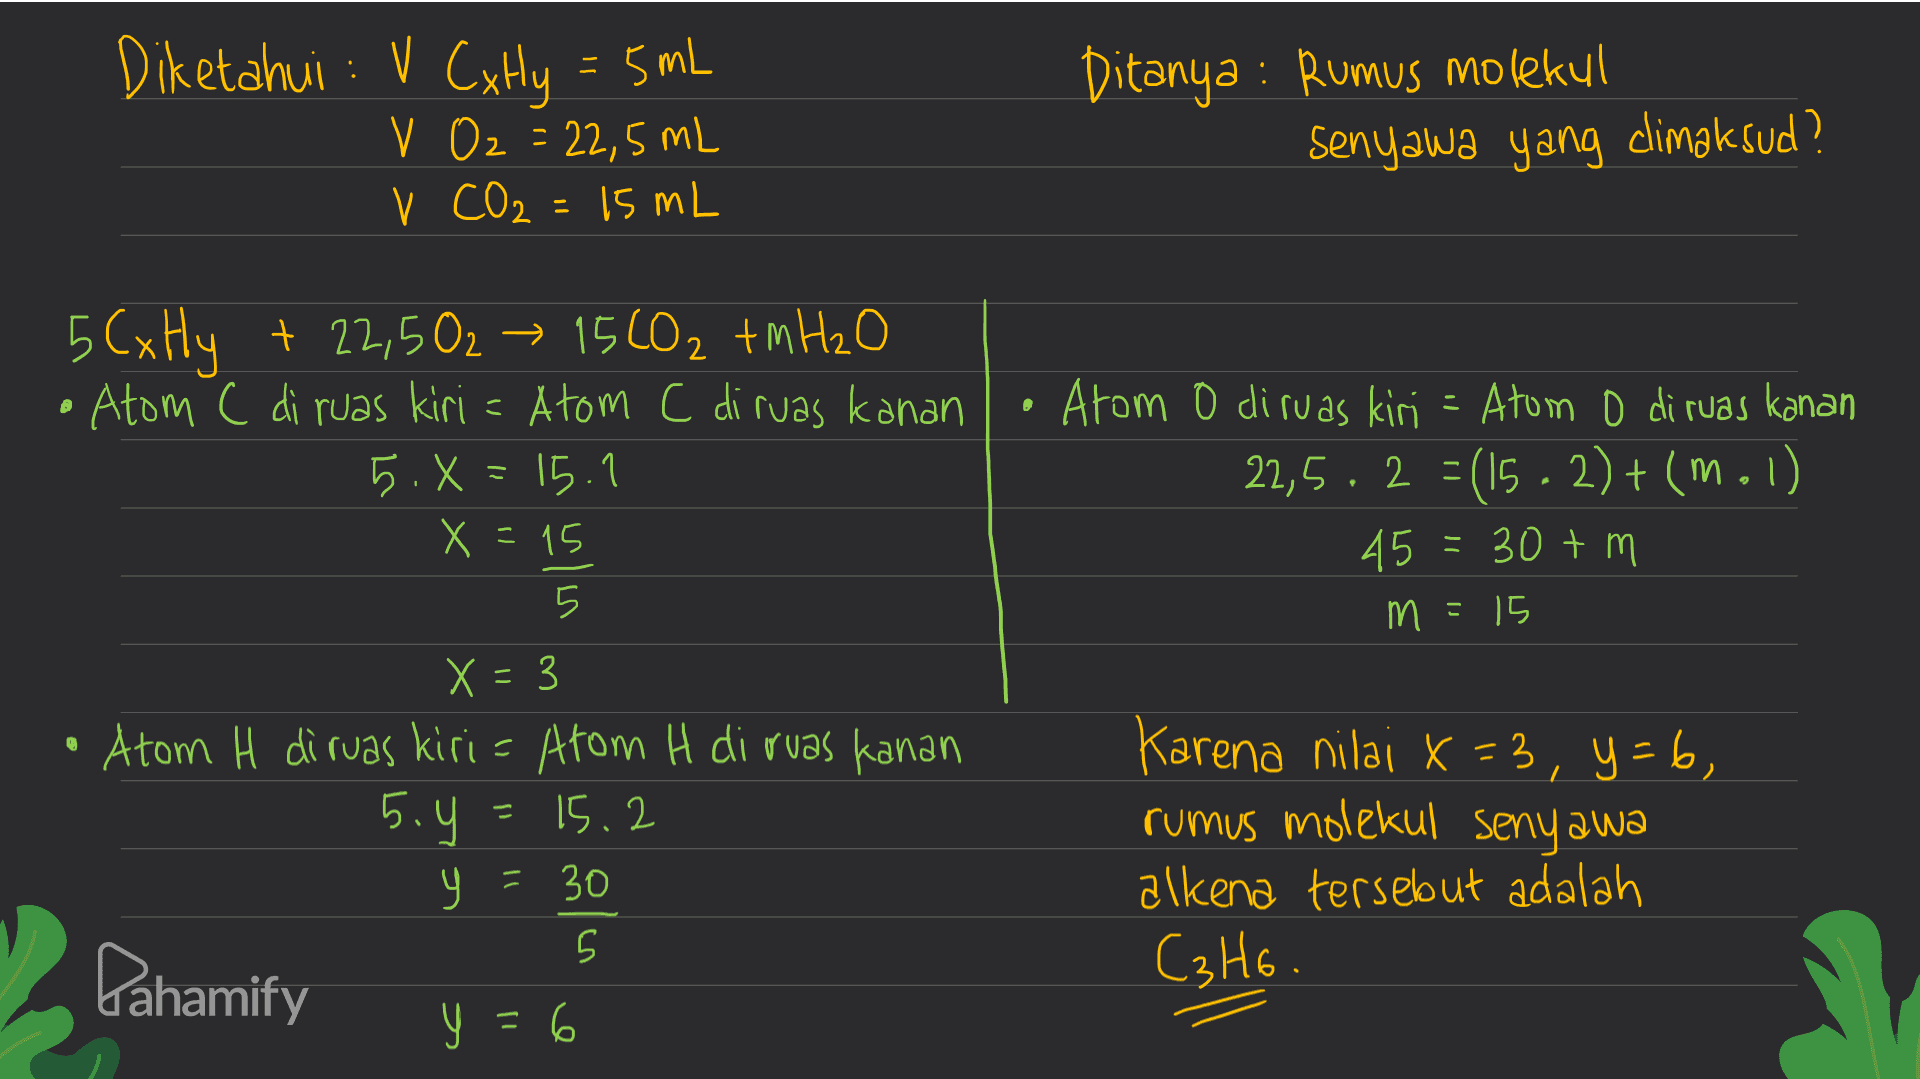 Diketahui : V CxHy = 5 mL
V O2 = 22,5 mL
V CO2 = 15 mL
Ditanya : Rumus molekul
senyawa yang dimaksud?
5 CxHy + 22,5 O2 → 15 CO2 + mH2O
• Atom C di ruas kiri = Atom C di ruas kanan
5 . X = 15 . 1
X = 15
5
X = 3
• Atom O di ruas kiri = Atom O di ruas kanan
22,5 . 2 = (15 . 2) + (m . 1)
45 = 30 + m
m = 15
• Atom H di ruas kiri = Atom H di ruas kanan
5 . y = 15 . 2
y = 30
5
y = 6
Karena nilai x = 3, y = 6,
rumus molekul senyawa
alkena tersebut adalah
C3H6.
Pahamify